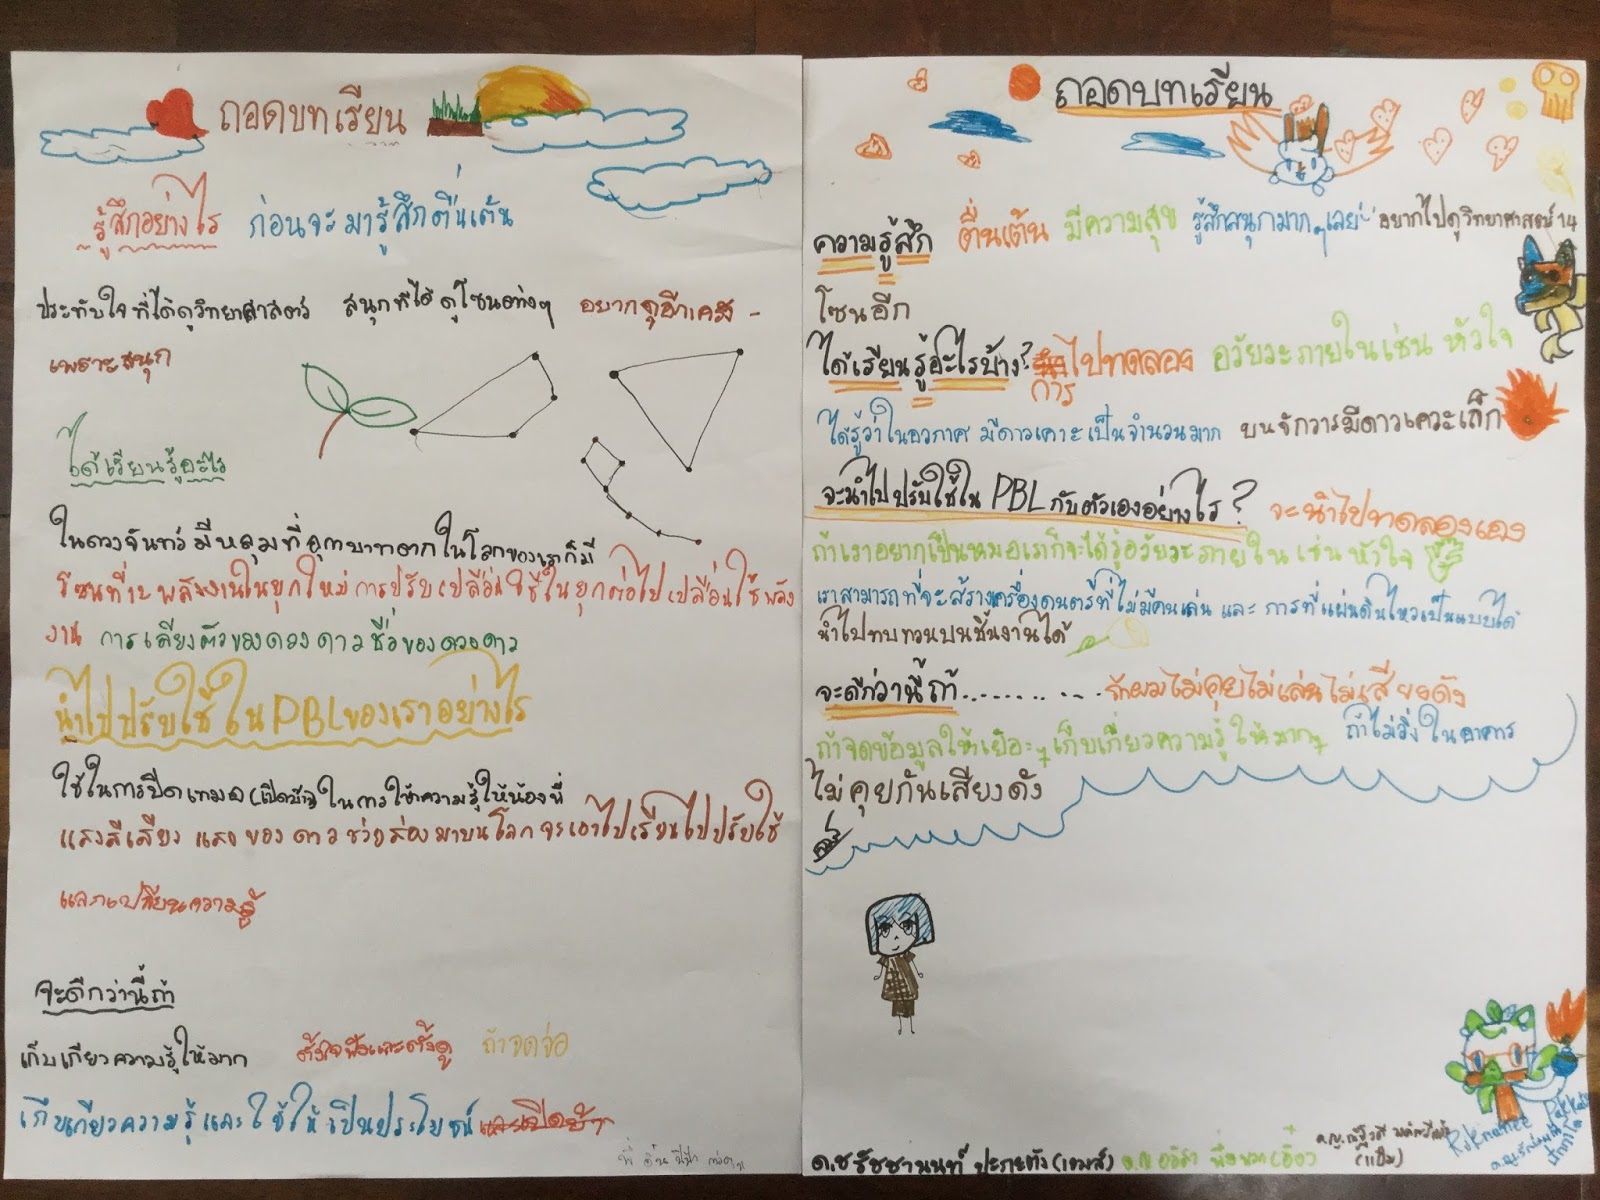 ถอดบทเรียน
รู้สึกอย่างไร ก่อนจะมารู้สึกตื่นเต้น
ประทับใจที่ได้ดูวิทยาศาสตร์ สนุกที่ได้ดูโซนต่างๆ อยากดูอีก
เพราะสนุก
ได้เรียนรู้อะไร
ในดวงจันทร์มีหลุมที่อุกาบาตตกในโลกของเราก็มี
โซนที่12 พลังงานในยุกใหม่ การปรับเปลี่ยนใช้ในยุกต่อไป เปลี่ยนใช้พลัง
งาน การเลียงตัวของดวงดาว ชื่อของดวงดาว
นำไปปรับใช้ใน PBL ของเราอย่างไร
ใช้ในการปิดเทมอ (เปิดบ้าน) ในการให้ความรู้ให้น้องที่
แสงสีเสียง แสงของดาวช่วยส่องมาบนโลก จะเอาไปเรียนไปปรับใช้
และเปลี่ยนความรู้
จะดีกว่านี้ถ้า
เก็บเกียวความรู้ให้มาก ตั้งใจฟังและตั้งดู ถ้าจดจ่อ
เก็บเกียวความรู้และใช้ให้เป็นประโยชน์
ถอดบทเรียน
ความรู้สึก ตื่นเต้น มีความสุข รู้สึกสนุกมากๆเลย อยากไปดูวิทยาศาสตร์ 14
โซนอีก
ได้เรียนรู้อะไรบ้าง? การไปทดลอง อวัยวะภายในเช่น หัวใจ
ได้รู้ว่าในอวกาศ มีดาวเคาะเป็นจำนวนมาก บนจักวารมีดาวเควะเล็ก
จะนำไปปรับใช้ใน PBL กับตัวเองอย่างไร? จะนำไปทดลองเอง
ถ้าเราอยากเป็นหมอเราก็จะได้รู้อวัยวะภายใน เช่น หัวใจ
เราสามารถที่จะสร้างเครื่องดนตรีที่ไม่มีคนเล่น และ การที่แผ่นดินไหวเป็นแบบได้
นำไปทบทวนบนชิ้นงานได้
จะดีกว่านี้ถ้า........... ถ้าผมไม่คุยไม่เล่นไม่เสียงดัง
ถ้าจดข้อมูลให้เยอะๆ เก็บเกี่ยวความรู้ให้มากๆ ถ้าไม่วิ่งในอาคาร
ไม่คุยกันเสียงดัง
ด.ช รัชชานนท์ (เจมส์)